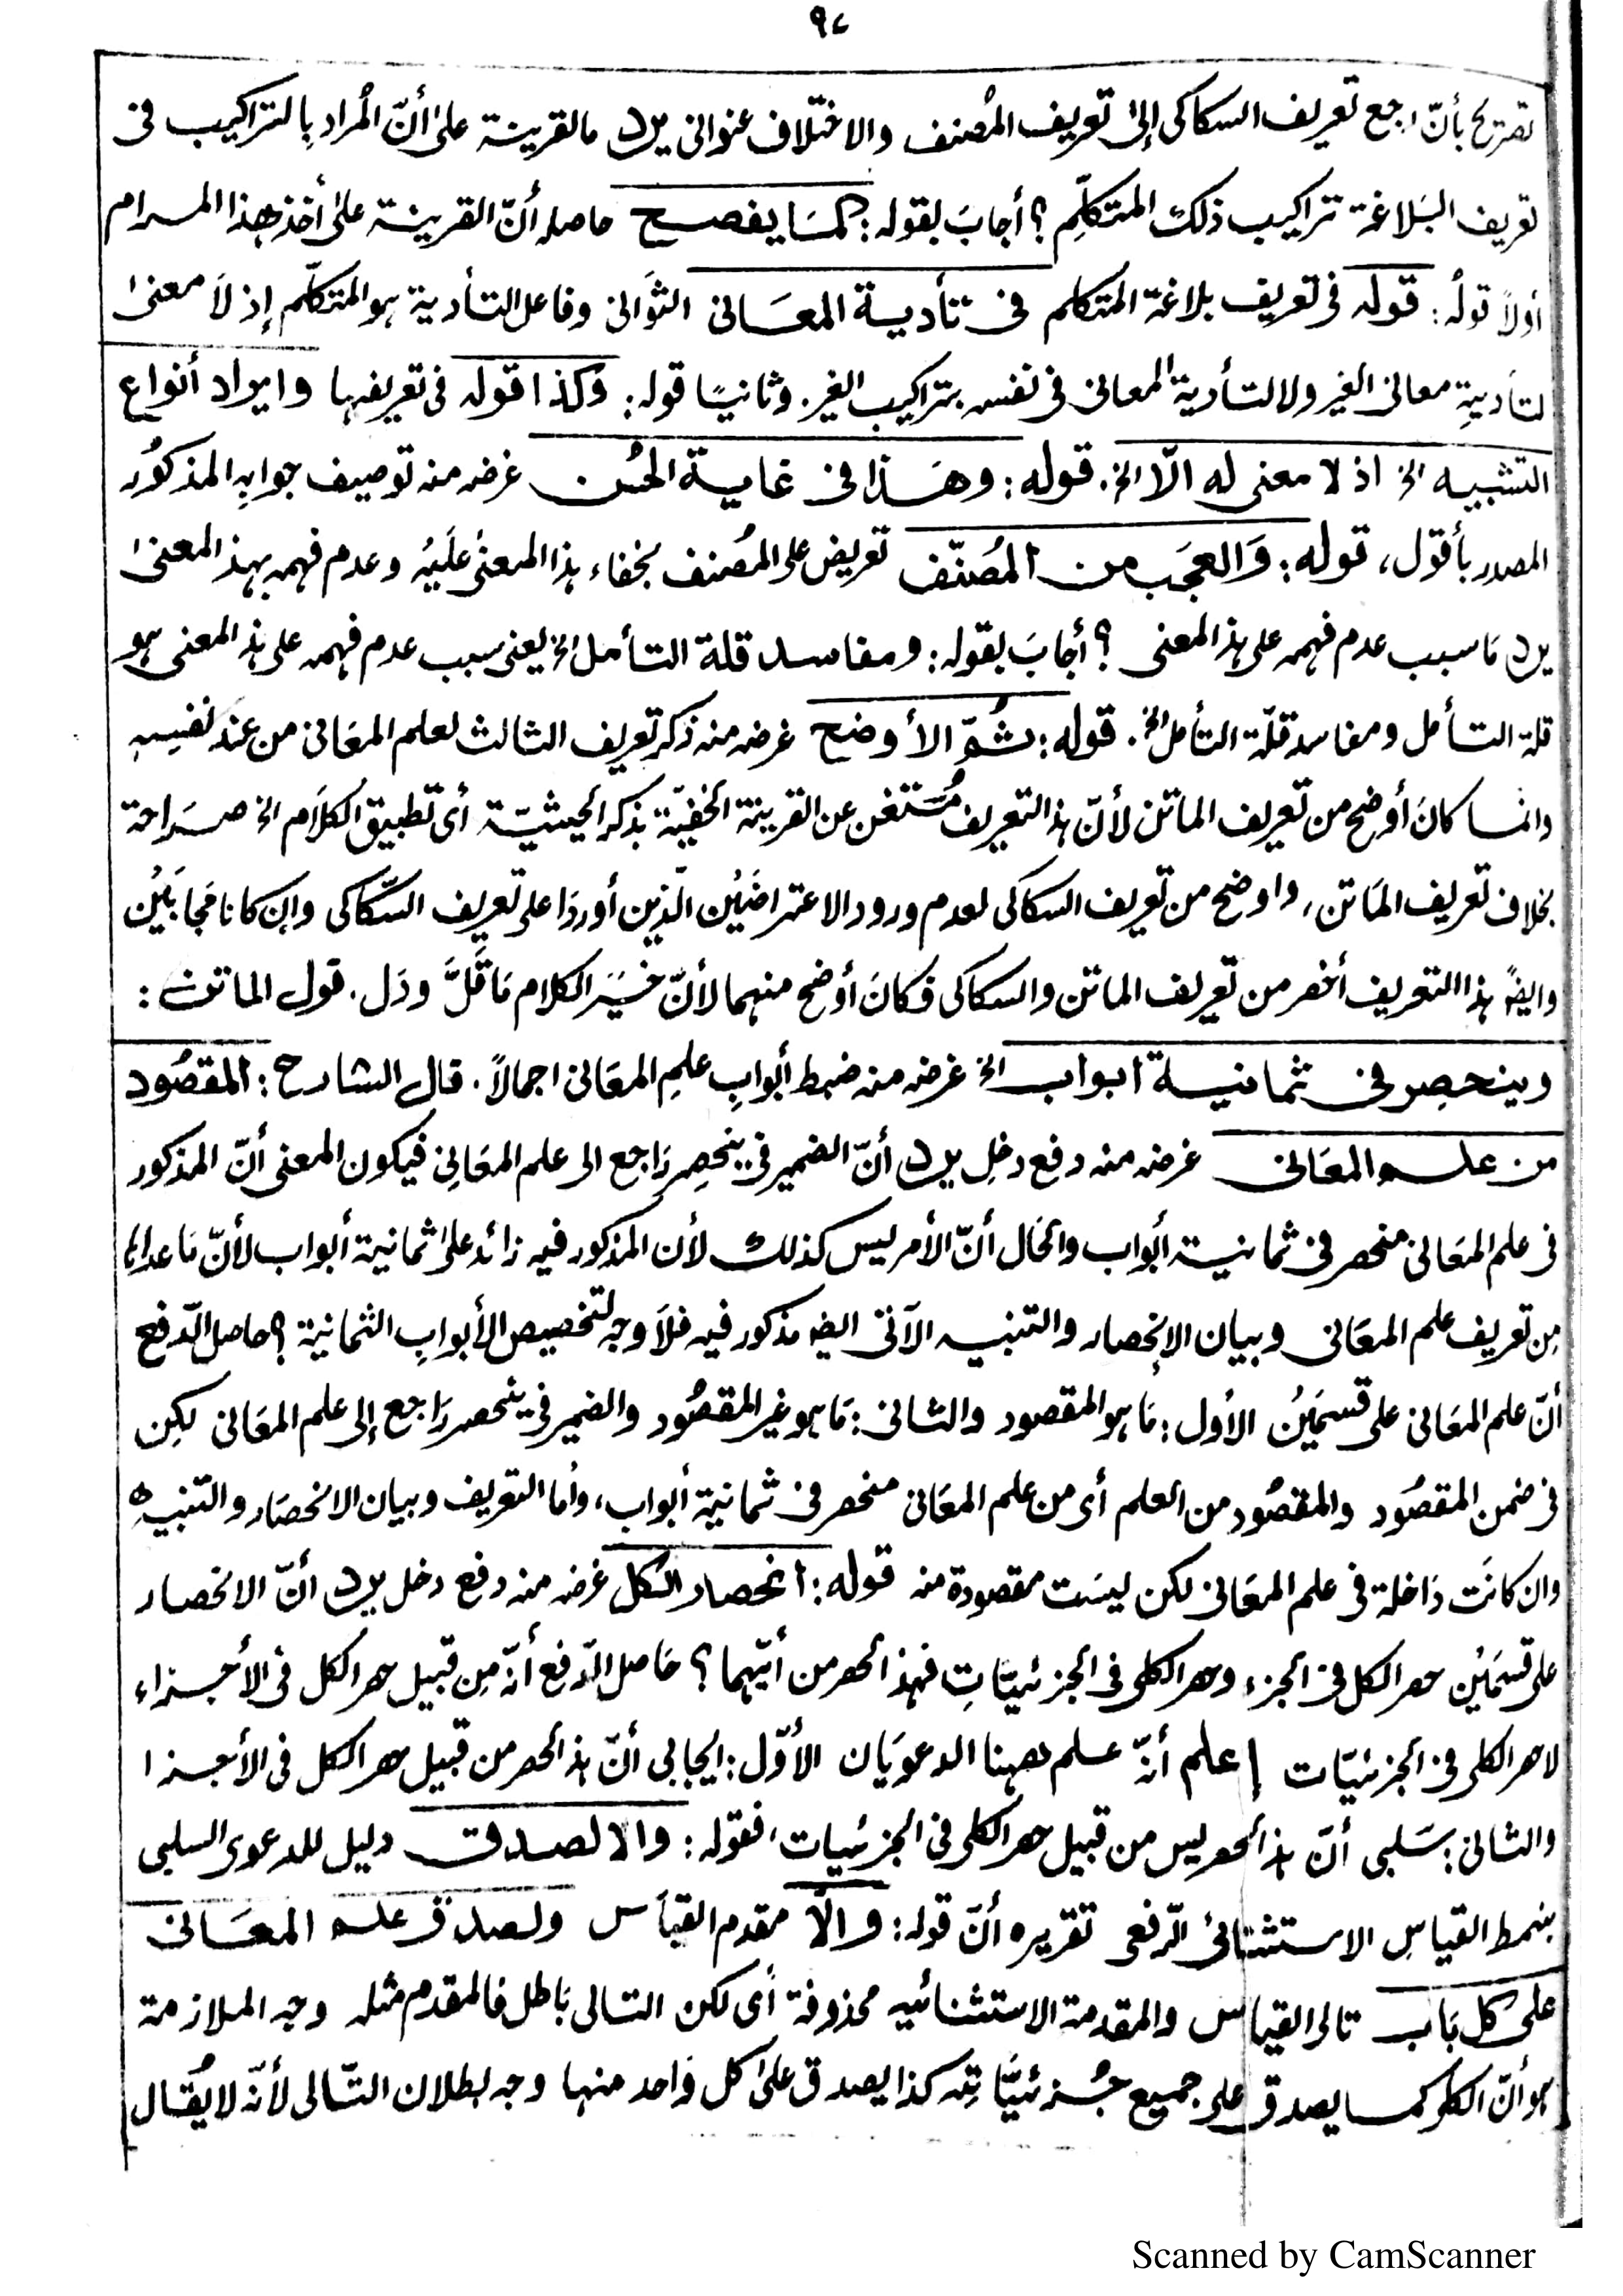 ٩٧
تصريح بأنّ رجع تعريف السكاكى إلىٰ تعريف المُصنف والاختلاف عنوانى يرد مالقرينة علىٰ أنّ المُراد بالتراكيب فى
تعريف البَلاغة تراكيب ذلك المتكلّم؟ أجابَ بقوله: كمَا يفصح حاصله أنّ القرينة علىٰ أخذ هذا المرام
أولاً قولُه: قوله فى تعريف بلاغة المتكلم فى تأدية المعَانى الثّوانى وفاعل التأدية هو المتكلّم إذ لاَ معنىٰ
لتأديةِ معانى الغير ولا لتأدية المعانى فى نفسه بتراكيب الغير. وثانيًا قوله: وكذا قوله فى تعريفها وايراد أنواع
التشبيه الخ اذ لا معنى له الّا الخ. قوله: وهَذا فى غاية الحُسن غرضه منه توصيف جوابِه المذكُور
المصدر بأقول، قوله: وَالعجَب من المُصنّف تعريض على المُصنف بخفاء هذا المعنىٰ عَلَيْهُ وعدم فهمه بهذا المعنىٰ
يرد مَا سبب عدم فهمه على هذا المعنى؟ أجابَ بقوله: ومفاسد قلة التأمل الخ يعنى سبب عدم فهمه على هذا المعنى هو
قلة التأمل ومفاسد قلّة التأمل الخ. قوله: ثُمّ الأوضح غرضه منه ذكر تعريف الثالث لعلم المعَانى من عند نفسِه
وانما كانَ أوضح من تعريف الماتن لأنّ هذا التعريف مُستَغن عن القرينة الخفيّة بذكر الحيثيّة أى تطبيق الكلَام الخ صَراحة
بخلاف تعريف المَاتن، واوضح من تعريف السكاكى لعدم ورود الاعتراضَيْن الّذين أوردَا على تعريف السّكاكى وإن كانا مُجابَيْن
وايضً هذا التعريف أخصر من تعريف الماتن والسكاكى فكانَ أوضح منهما لأنّ خَيَر الكلام مَا قَلَّ ودَل. قول الماتن:
وينحصِر فى ثمانية ابواب الخ غرضه منه ضبط أبوابِ علمِ المعَانى اجمالاً. قال الشارح: المقصُود
من علم المعَانى غرضه منه دفع دخلٍ يرد أنّ الضمير فى ينحصِر رَاجع الى علم المعَانِى فيكون المعنى أنّ المذكور
فى علم المعَانى منحصر فى ثمانية أبواب والحَال أنّ الأمر ليس كذلك لأن المذكور فيه زائد علىٰ ثمانية أبواب لأنّ مَا عداها
مِن تعريف علم المعَانى وبيان الإنحصار والتنبيه الآتى ايضً مذكور فيه فلَا وجه لتخصيص الأبوابِ الثمانية؟ حاصل الدّفع
أنّ علم المعَانى على قسمَيْن الأول: مَا هو المقصود والثانى: مَا هو غير المقصُود والضمير فى ينحصر رَاجع إلى علم المعَانى لٰكِن
فى ضمن المقصُود والمقصُود من العلم أى من علم المعَانى منحصر فى ثمانية أبواب، وأما التعريف وبيان الانحصَار والتنبيه
وان كانَت دَاخلة فى علم المعَانى لكن ليسَت مقصودة منه قوله: انحصار الكل غرضه منه دفع دخل يرد أنّ الانحصار
على قسمَيْن حصر الكل فى الجزء وحصر الكلى فى الجزئيّاتِ فهذا الحصر من أيّهما؟ حَاصل الدّفع أنّه مِن قبيل حصر الكل فى الأجزاء
لا حصر الكلى فى الجزئيّات إعلم أنّه علم ههنا الدعوَيان الأوّل: ايجابى أنّ هذا الحصر من قبيل حصر الكل فى الأجزا
والثانى: سَلبى أنّ هذا الحصر ليس من قبيل حصر الكلى فى الجزئيات، فقوله: والا لصدق دليل للدعوى السلبى
بنمط القياسِ الاستثنائى الرّفعى تقريره أنّ قوله: والّا مقدم القيَاس ولصدق علم المعَانى
على كل بَاب تالى القياس والمقدمة الاستثنائيه محذوفة أى لكن التالى بَاطل فالمقدم مثله وجه الملازمة
هو أنّ الكلى كما يصدق على جميع جُزئيَّاتِه كذا يصدق علىٰ كل وَاحد منها وجه بطلان التّالى لأنّه لا يُقال
Scanned by CamScanner